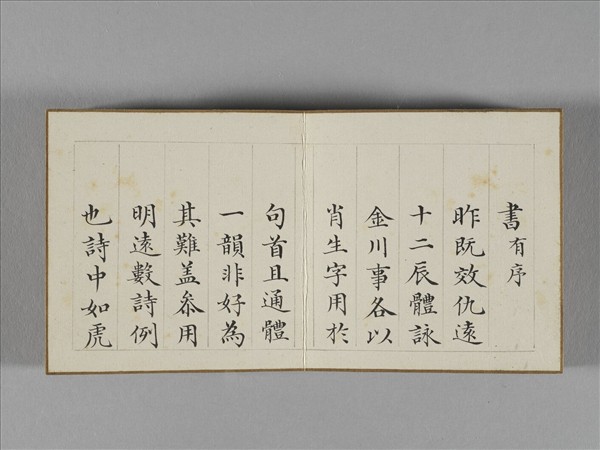 書有序
昨既效仇遠
十二辰體詠
金川事各以
肖生字用於
句首且通體
一韻非好為
其難盖叅用
明遠數詩例
也詩中如虎